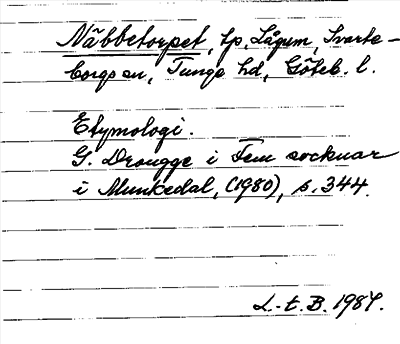 Näbbetorpet, tp, Lågum, Svarte-
borgs sn, Tunge hd, Göteb. l.
Etymologi.
G. Drougge i Fem socknar
i Munkedal, (1980), s. 344.
L.-t. B. 1987.